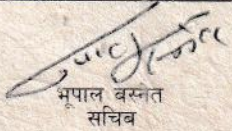 भूपाल वस्नेत
सचिब